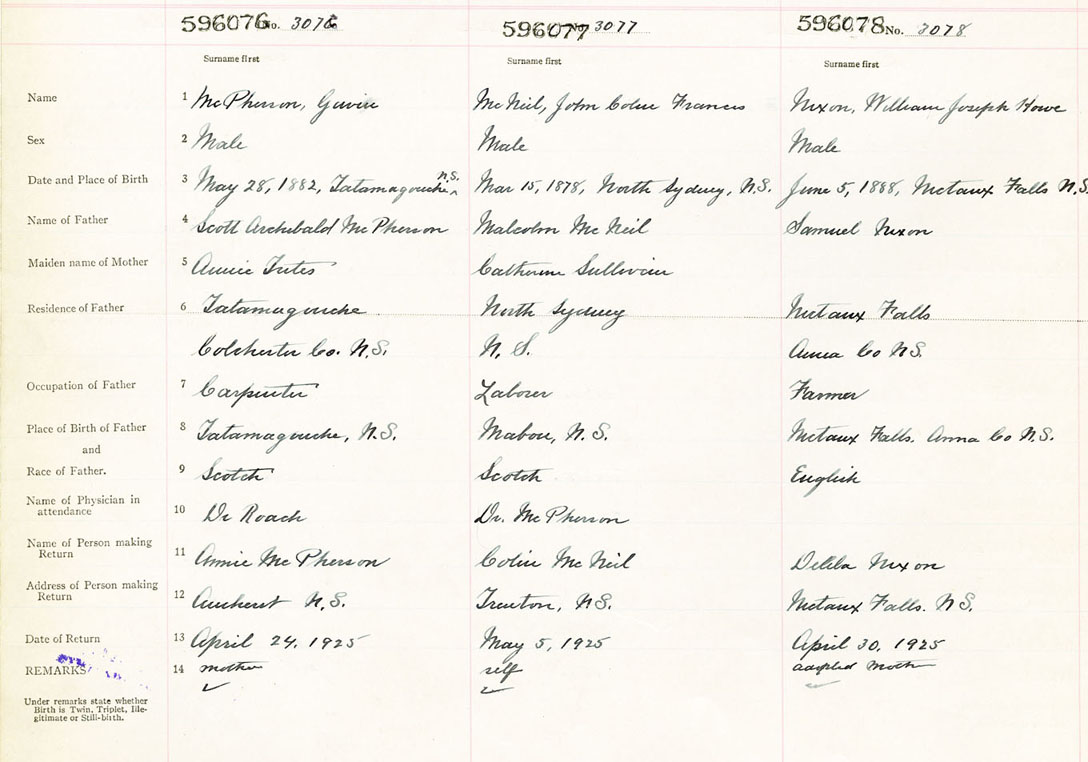 596076 No. 3076 596077 No. 3077 596078 No. 3078
Surname first Surname first Surname first
Name 1 McPherson, Guvin McNeil, John Colin Francis Nixon, William Joseph Howe
Sex 2 Male Male Male
Date and Place of Birth 3 May 28, 1882, Tatamagouche N.S. Mar 15, 1878, North Sydney, N.S. June 5, 1888, Metaux Falls N.S.
Name of Father 4 Scott Archibald McPherson Malcolm McNeil Samuel Nixon
Maiden name of Mother 5 Annie Catherine Sullivan
Residence of Father 6 Tatamagouche North Sydney Metaux Falls
Colchester Co. N.S. N.S. Anna Co N.S.
Occupation of Father 7 Carpenter Laborer Farmer
Place of Birth of Father 8 Tatamagouche, N.S. Mabou, N.S. Metaux Falls. Anna Co N.S.
and
Race of Father. 9 Scotch Scotch English
Name of Physician in
attendance 10 Dr Roach Dr. McPherson
Name of Person making
Return 11 Annie McPherson Colin McNeil Delila Nixon
Address of Person making
Return 12 Amherst N.S. Trenton, N.S. Metaux Falls. N.S.
Date of Return 13 April 24, 1925 May 5, 1925 April 30, 1925
REMARKS 14 mother self adopted moth
Under remarks state whether
Birth is Twin, Triplet, Ille-
gitimate or Still-birth.